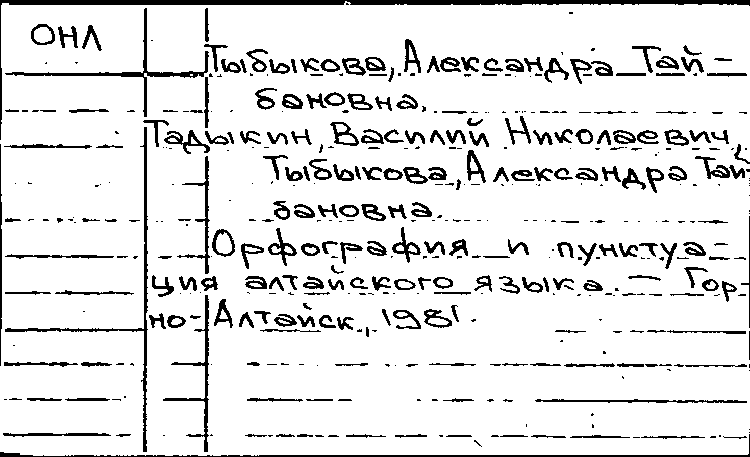 ОНЛ
Тыбыкова, Александра Тай-
бановна.
Тадыкин, Василий Николаевич,
Тыбыкова, Александра Тай-
бановна.
Орфография и пунктуа-
ция алтайского языка. — Гор-
но-Алтайск, 1981.